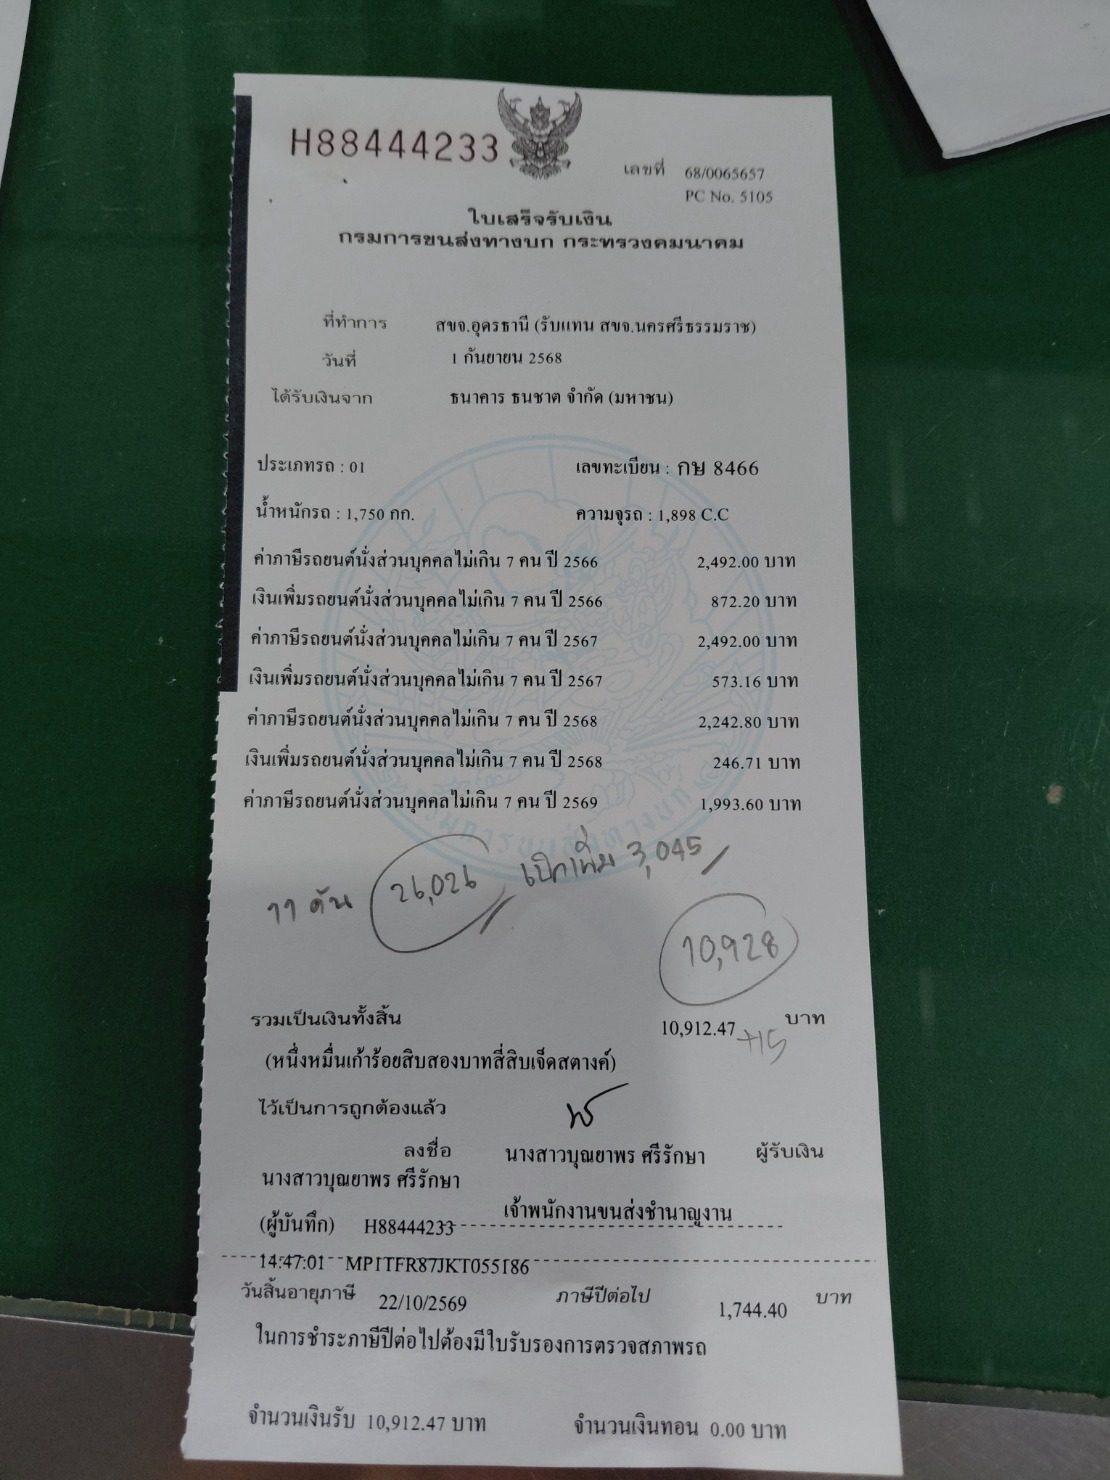 H88444233
เลขที่ 68/0065657
PC No. 5105
ใบเสร็จรับเงิน
กรมการขนส่งทางบก กระทรวงคมนาคม
ที่ทำการ สขจ.อุดรธานี (รับแทน สขจ.นครศรีธรรมราช)
วันที่ 1 กันยายน 2568
ได้รับเงินจาก ธนาคาร ธนชาต จำกัด (มหาชน)
ประเภทรถ : 01 เลขทะเบียน : กษ 8466
น้ำหนักรถ : 1,750 กก. ความจุรถ : 1,898 C.C
ค่าภาษีรถยนต์นั่งส่วนบุคคลไม่เกิน 7 คน ปี 2566 2,492.00 บาท
เงินเพิ่มรถยนต์นั่งส่วนบุคคลไม่เกิน 7 คน ปี 2566 872.20 บาท
ค่าภาษีรถยนต์นั่งส่วนบุคคลไม่เกิน 7 คน ปี 2567 2,492.00 บาท
เงินเพิ่มรถยนต์นั่งส่วนบุคคลไม่เกิน 7 คน ปี 2567 573.16 บาท
ค่าภาษีรถยนต์นั่งส่วนบุคคลไม่เกิน 7 คน ปี 2568 2,242.80 บาท
เงินเพิ่มรถยนต์นั่งส่วนบุคคลไม่เกิน 7 คน ปี 2568 246.71 บาท
ค่าภาษีรถยนต์นั่งส่วนบุคคลไม่เกิน 7 คน ปี 2569 1,993.60 บาท
กรมการขนส่งทางบก
11 คัน 26,026 เบิกเพิ่ม 3,045
10,928
รวมเป็นเงินทั้งสิ้น 10,912.47 บาท
+15
(หนึ่งหมื่นเก้าร้อยสิบสองบาทสี่สิบเจ็ดสตางค์)
ไว้เป็นการถูกต้องแล้ว
ลงชื่อ นางสาวบุณยาพร ศรีรักษา ผู้รับเงิน
นางสาวบุณยาพร ศรีรักษา
เจ้าพนักงานขนส่งชำนาญงาน
(ผู้บันทึก) H88444233
14:47:01 MP1TFR87JKT055186
วันสิ้นอายุภาษี 22/10/2569 ภาษีปีต่อไป 1,744.40 บาท
ในการชำระภาษีปีต่อไปต้องมีใบรับรองการตรวจสภาพรถ
จำนวนเงินรับ 10,912.47 บาท จำนวนเงินทอน 0.00 บาท